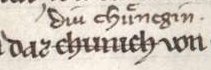 diu chuͤnegin.
daz chunich von